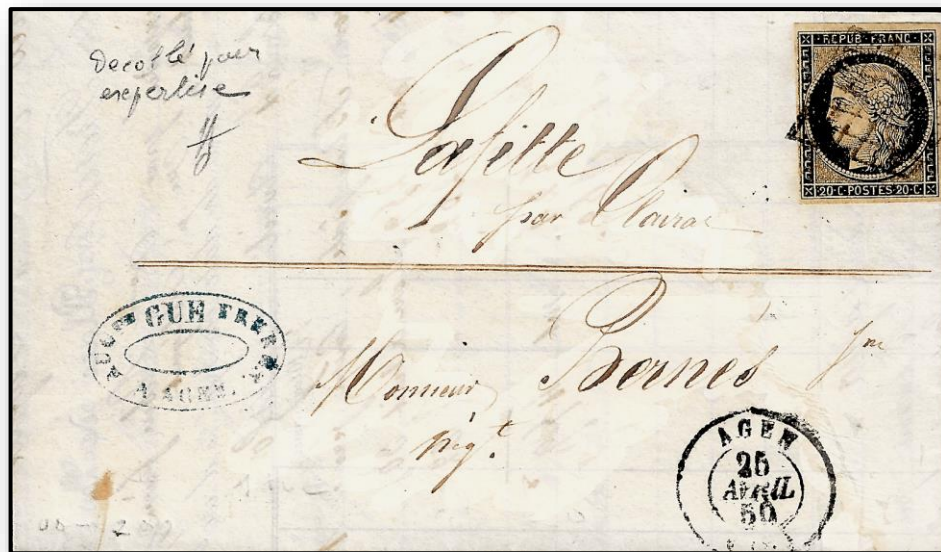 Decollé pour
expertise
REPUB FRANC
20·C·POSTES·20·C
Lafitte
par Clairac
GUE
A AGEN.
Monsieur Bernès Jne
Négt.
AGEN
25
AVRIL
50